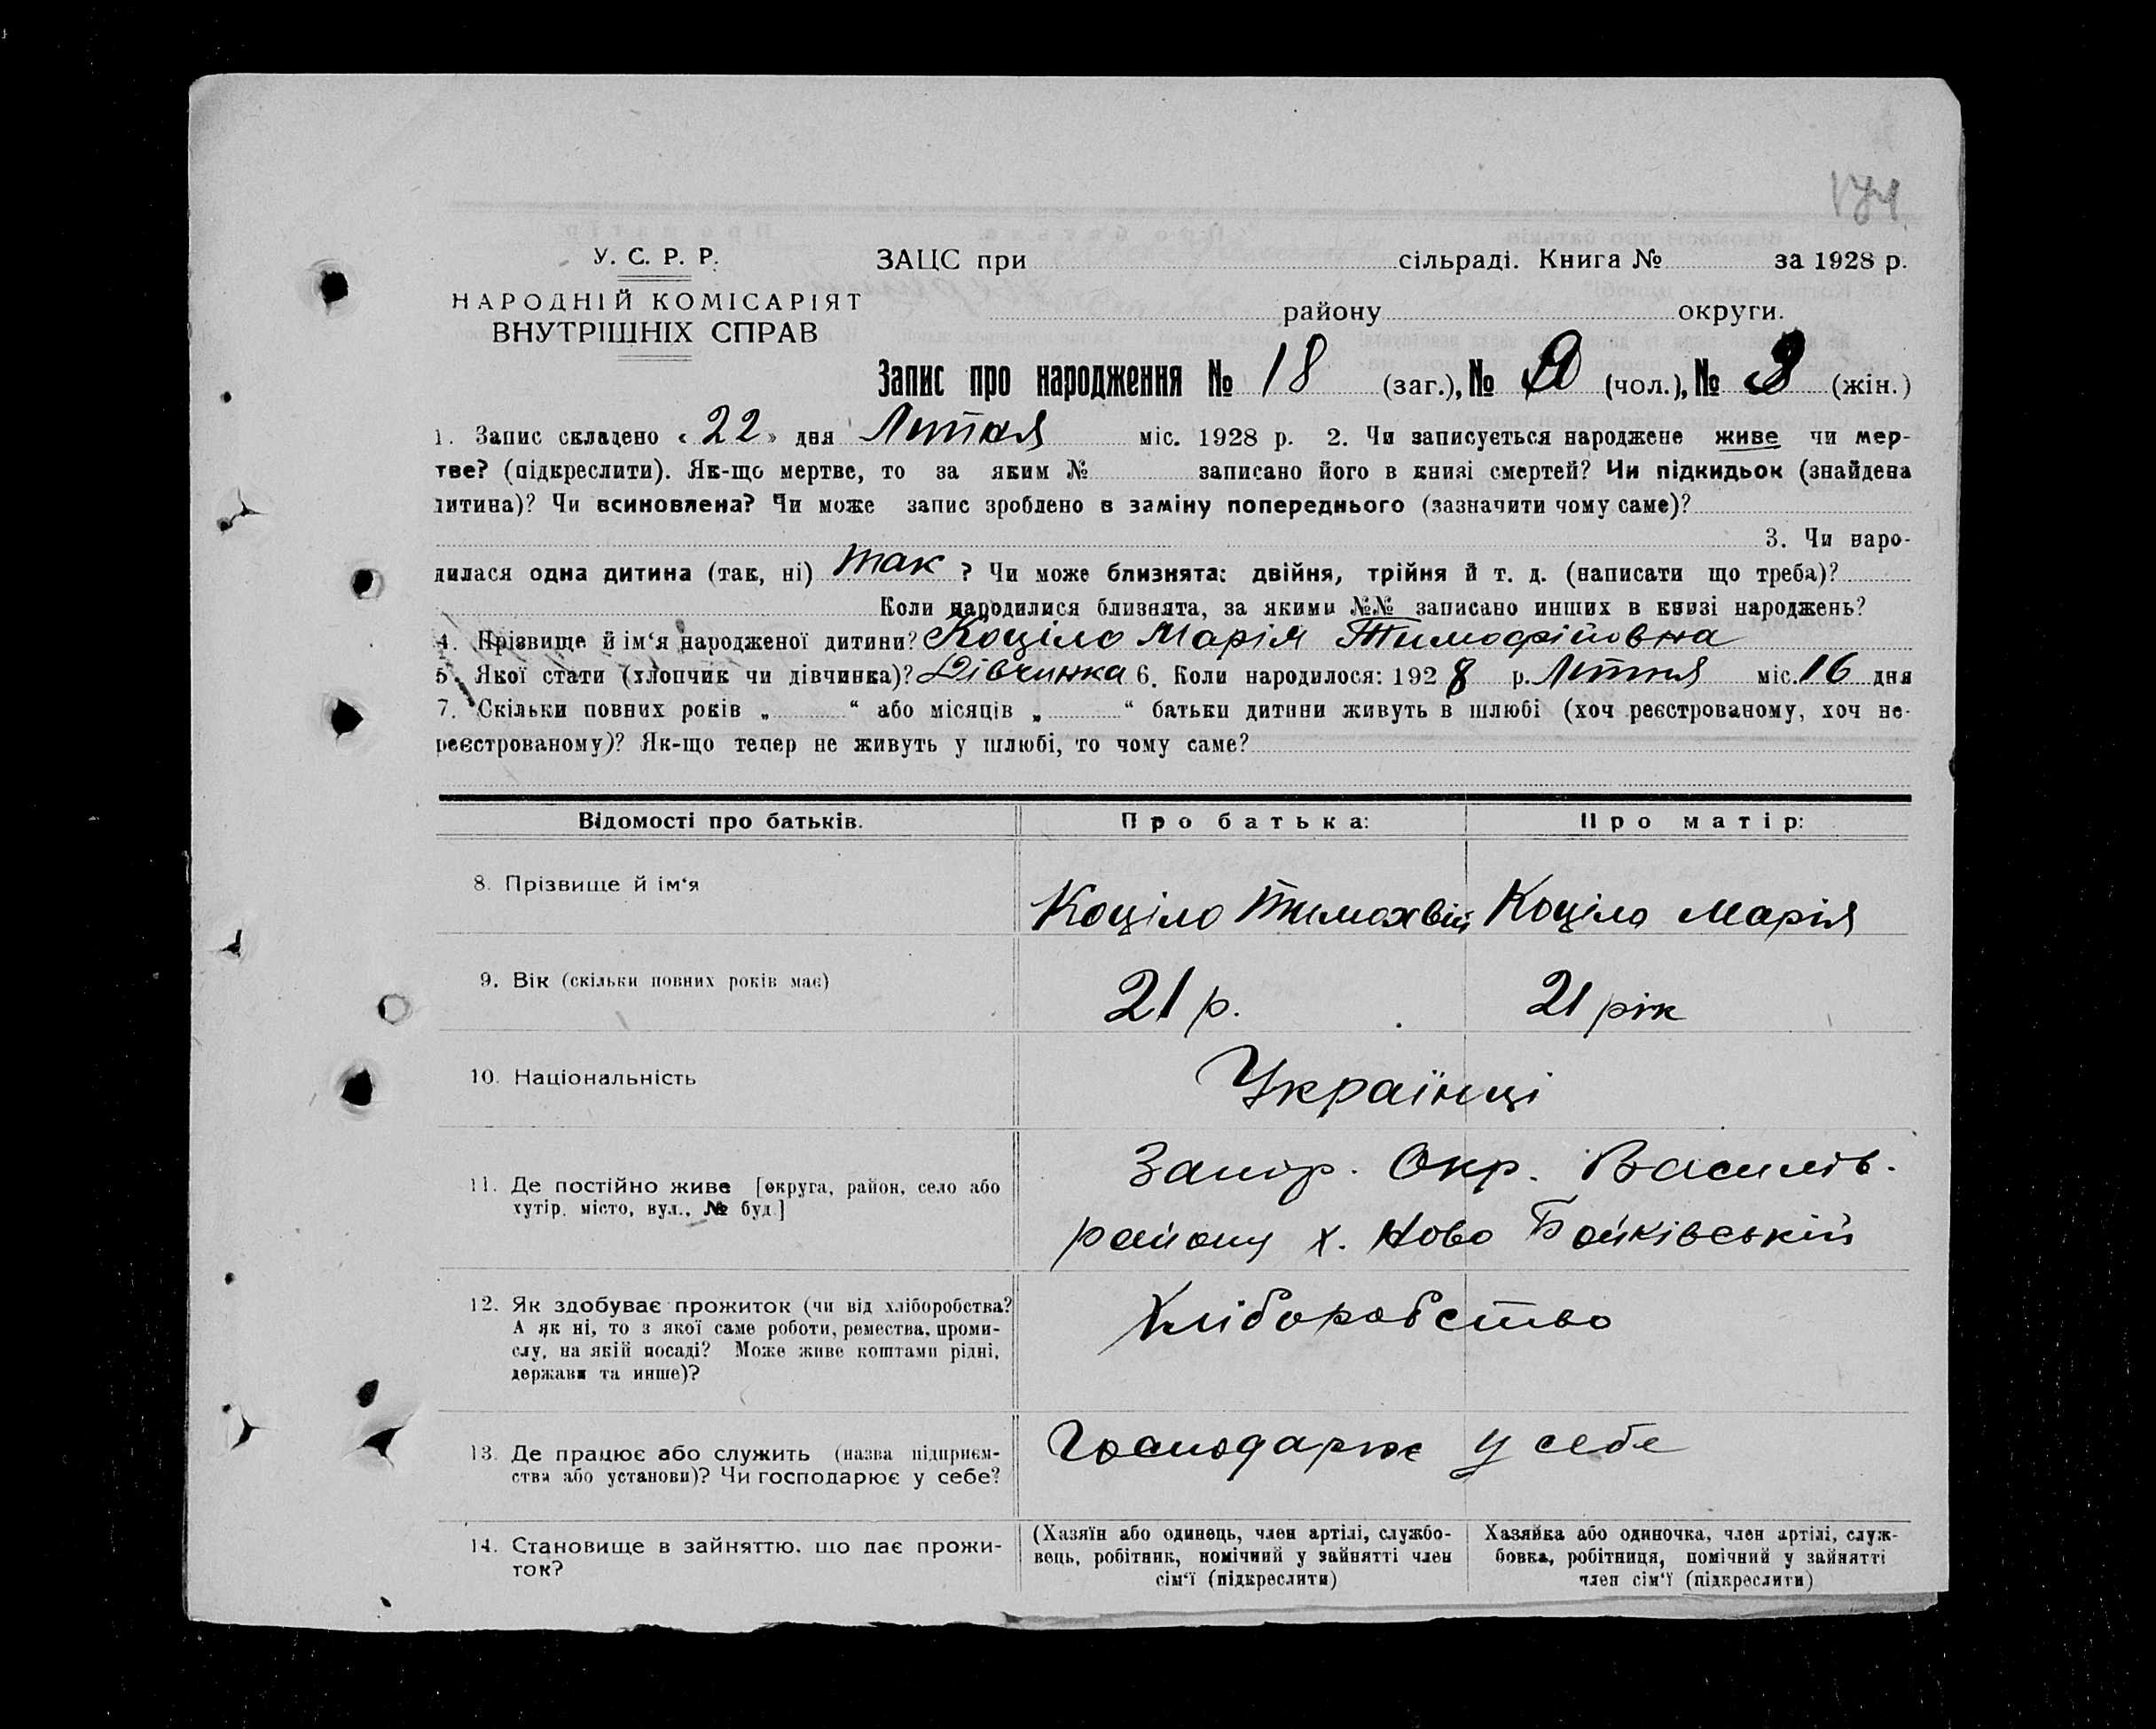 174
У. С. Р. Р.
НАРОДНІЙ КОМІСАРІЯТ
ВНУТРІШНІХ СПРАВ
ЗАЦС при сільраді. Книга № за 1928 р.
району округи.
Запис про народження № 18 (заг.), № (чол.), № (жін.)
1. Запис складено « 22 » дня Лютня міс. 1928 р. 2. Чи записується народжене живе чи мер-
тве? (підкреслити). Як-що мертве, то за яким № записано його в книзі смертей? Чи підкидьок (знайдена
дитина)? Чи всиновлена? Чи може запис зроблено в заміну попереднього (зазначити чому саме)?
3. Чи наро-
дилася одна дитина (так, ні) так ? Чи може близнята: двійня, трійня й т. д. (написати що треба)?
Коли народилися близнята, за якими №№ записано инших в книзі народжень?
4. Прізвище й ім‘я народженої дитини? Коціло Марія Тимофійовна
5. Якої стати (хлопчик чи дівчинка)? Дівчинка 6. Коли народилося: 1928 р. Лютня міс. 16 дня
7. Скільки повних років „ “ або місяців „ “ батьки дитини живуть в шлюбі (хоч реєстрованому, хоч не-
реєстрованому)? Як-що тепер не живуть у шлюбі, то чому саме?
Відомості про батьків. Про батька: Про матір:
8. Прізвище й ім‘я Коціло Тимохвій Коціло Марія
9. Вік (скільки повних років має) 21 р. 21 рік
10. Національність Українці
11. Де постійно живе [округа, район, село або
хутір, місто, вул., № буд.]
Запор. Окр. Василів.
району х. Ново Байківській
12. Як здобуває прожиток (чи від хліборобства?
А як ні, то з якої саме роботи, ремества, проми-
слу, на якій посаді? Може живе коштами рідні,
держави та инше)?
Хліборобство
13. Де працює або служить (назва підприєм-
ства або установи)? Чи господарює у себе?
Господарює у себе
14. Становище в зайняттю, що дає прожи-
ток?
(Хазяїн або одинець, член артілі, службо-
вець, робітник, помічний у зайнятті член
сім‘ї (підкреслити)
Хазяйка або одиночка, член артілі, служ-
бовка, робітниця, помічний у зайнятті
член сім‘ї (підкреслити)